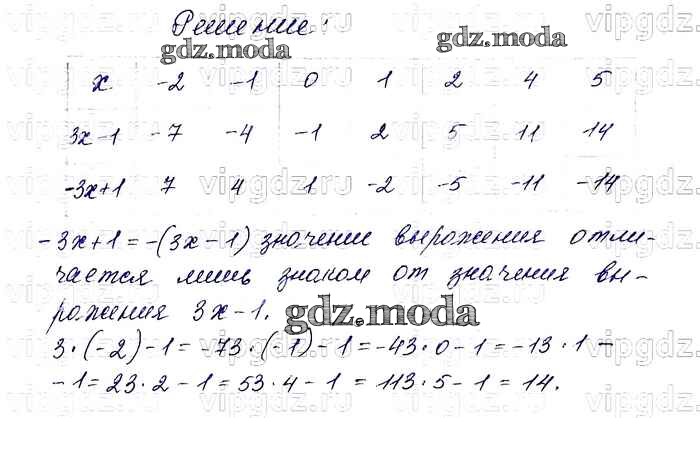 Решение:
x -2 -1 0 1 2 4 5
3x-1 -7 -4 -1 2 5 11 14
-3x+1 7 4 1 -2 -5 -11 -14
-3x+1=-(3x-1) значение выражения отли-
чается лишь знаком от значения вы-
ражения 3x-1.
3·(-2)-1=-73·(-1)-1=-43·0-1=-13·1-
-1=23·2-1=53·4-1=113·5-1=14.
gdz.moda
gdz.moda
gdz.moda
vipgdz.ru